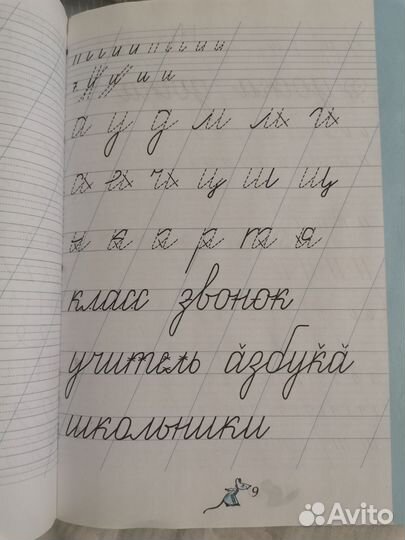 а у д м
а ч ц ш щ
н к а р т я
класс звонок
учитель азбука
школьники
9
Avito